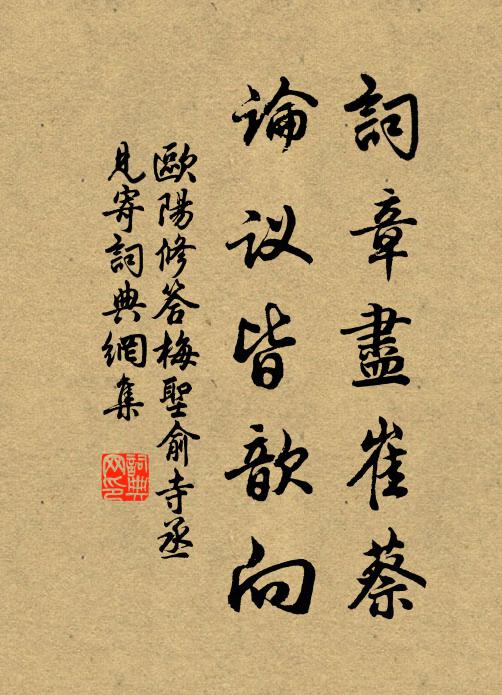 詞章盡崔蔡
论议皆歆向
歐陽修答梅聖俞寺丞
見寄詞典網集
詞典
网印